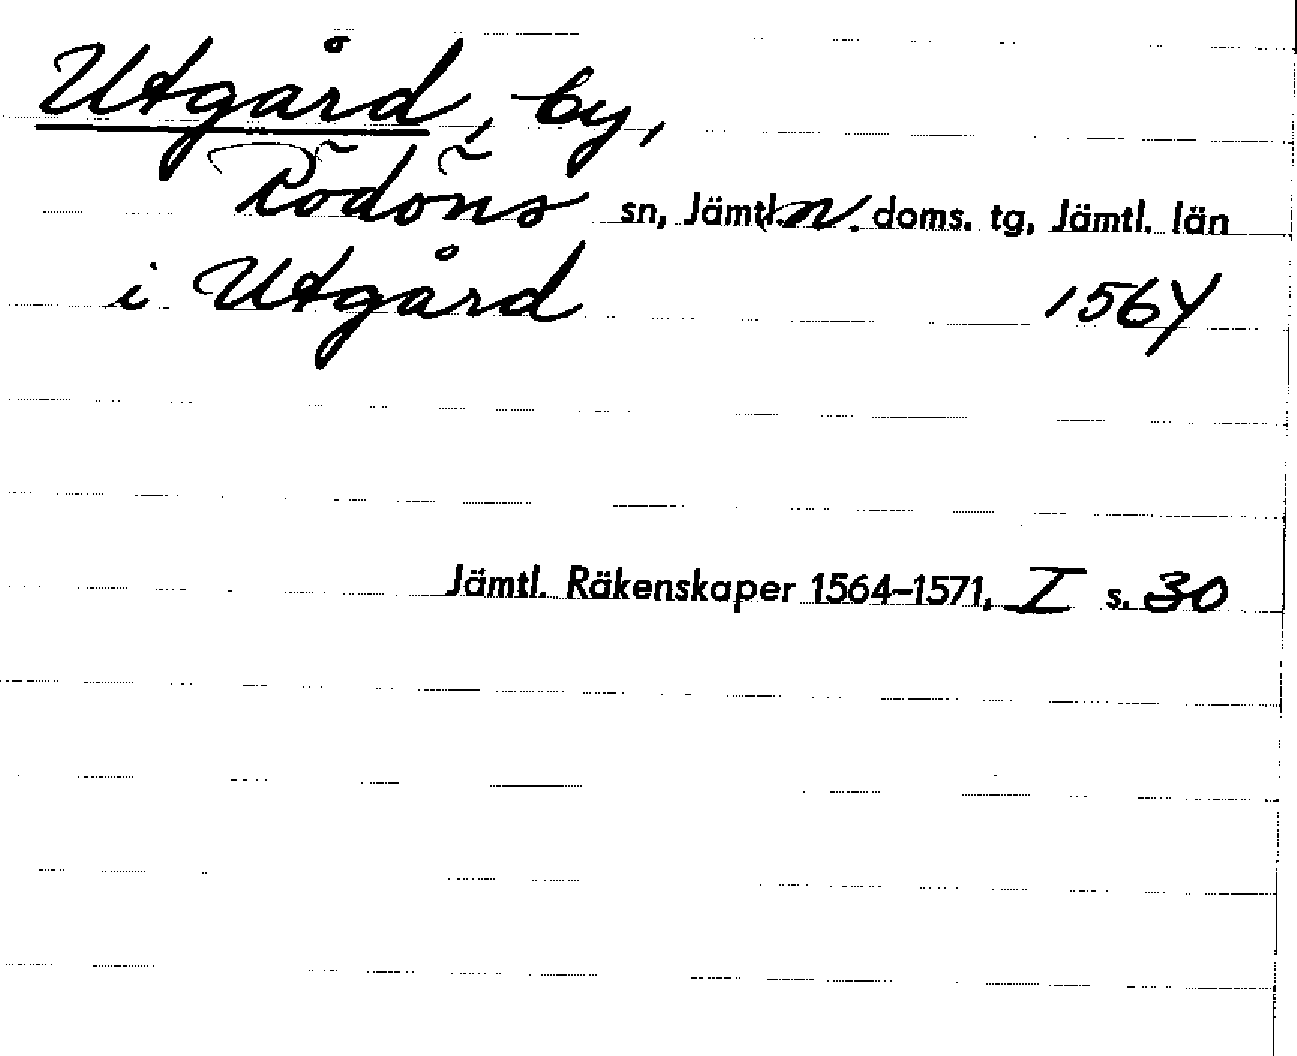 Utgård, by,
Rödöns sn, Jämtl. n. doms. tg, Jämtl. län
i Utgård 1564
Jämtl. Räkenskaper 1564–1571, I s. 30